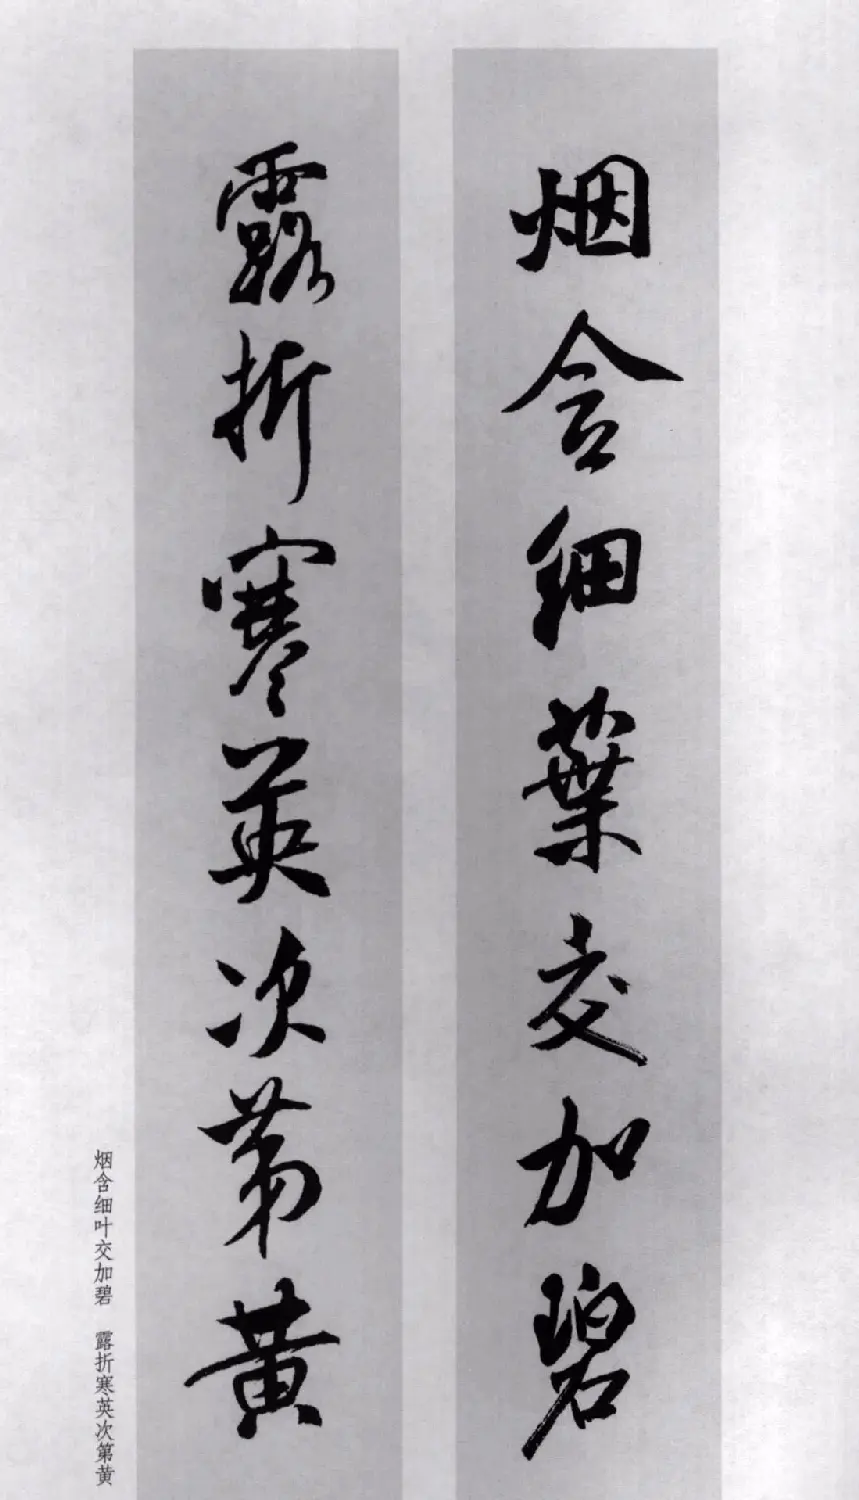 烟含細葉交加碧
露折寒英次第黄
烟含细叶交加碧 露折寒英次第黄